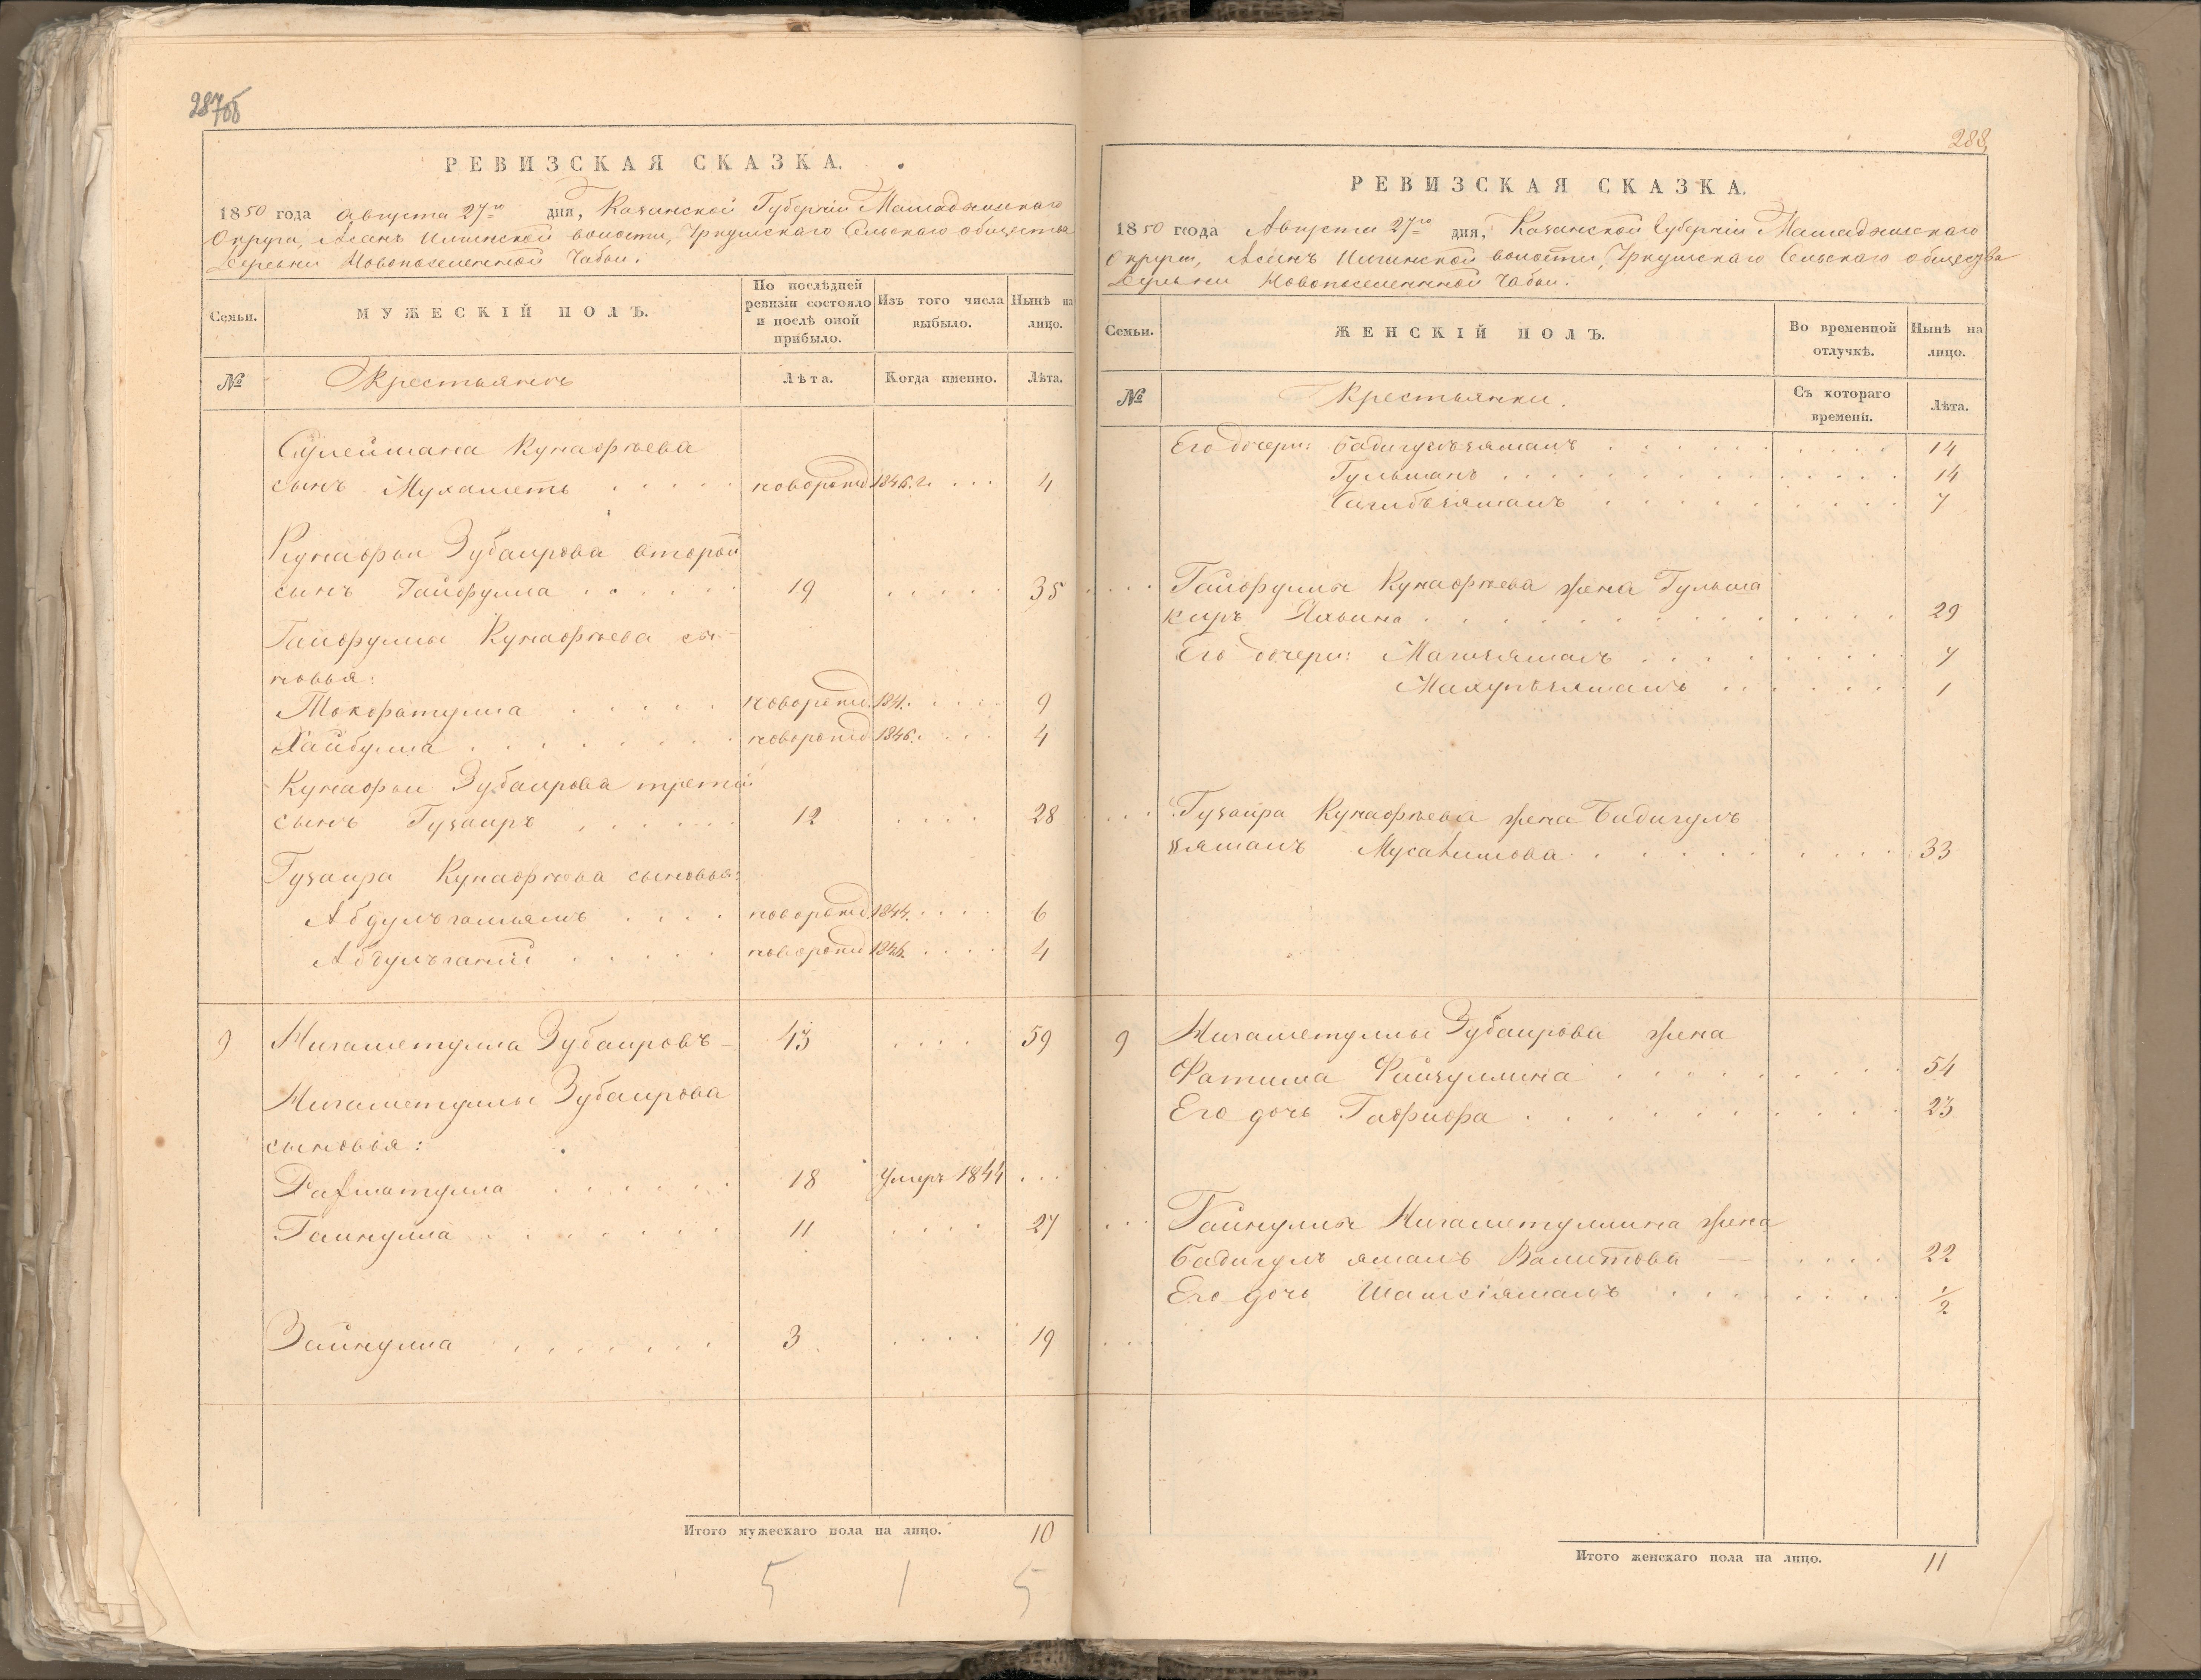 287об
РЕВИЗСКАЯ СКАЗКА.
1850 года Августа 27го дня, Казанской Губерніи Мамадышскаго
Округа, Асанъ Илгинской волости, Сельскаго общества
Деревни Новопоселенной Чабьи.
Семьи.
МУЖЕСКІЙ ПОЛЪ.
По послѣдней ревизіи состояло и послѣ оной прибыло.
Изъ того числа выбыло.
Нынѣ на лицо.
№
Крестьянъ
Лѣта.
Когда именно.
Лѣта.
Сулеймана Кунафѣева
сынъ Мухаметь новорожд 1846. г. 4
Кунафьи Зубаирова второй
сынъ Гайфулла 19 35
Гайфуллы Кунафѣева сы-
новья:
Токфатулла новорожд. 1841. 9
Хайбулла новорожд 1846. 4
Кунафьи Зубаирова третій
сынъ Гузаиръ 12 28
Гузаира Кунафѣева сыновья:
Абдулъгалямъ новорожд 1844. 6
Абдулъганій новорожд 1846. 4
9 Нигаметулла Зубаировъ 43 59
Нигаметуллы Зубаирова
сыновья:
Рахматулла 18 Умеръ 1844
Гайнулла 11 27
Зайнулла 3 19
Итого мужескаго пола на лицо. 10
5 1 5
288.
РЕВИЗСКАЯ СКАЗКА.
1850 года Августа 27го дня, Казанской Губерніи Мамадышскаго
Округа, Асанъ Илгинской волости, Сельскаго общества
Деревни Новопоселенной Чабьи.
Семьи.
ЖЕНСКІЙ ПОЛЪ.
Во временной отлучкѣ.
Нынѣ на лицо.
№
Крестьянки.
Съ котораго времени.
Лѣта.
Его дочери: Бадигулъзямалъ 14
Гульжанъ 14
Сагибъзямалъ 7
Гайфуллы Кунафѣева жена Гульша
киръ Яхьина 29
Его дочери: Магизямалъ 7
Махупъзямалъ 1
Гузаира Кунафѣева жена Бадигулъ
зямалъ Мусалимова 33
9 Нигаметуллы Зубаирова жена
Фатима Файзуллина 54
Его дочь Гафифа 23
Гайнуллы Нигаметуллина жена
Бадигулъ ямалъ Валитова 22
Его дочь Шамсіямалъ 1/2
Итого женскаго пола на лицо. 11